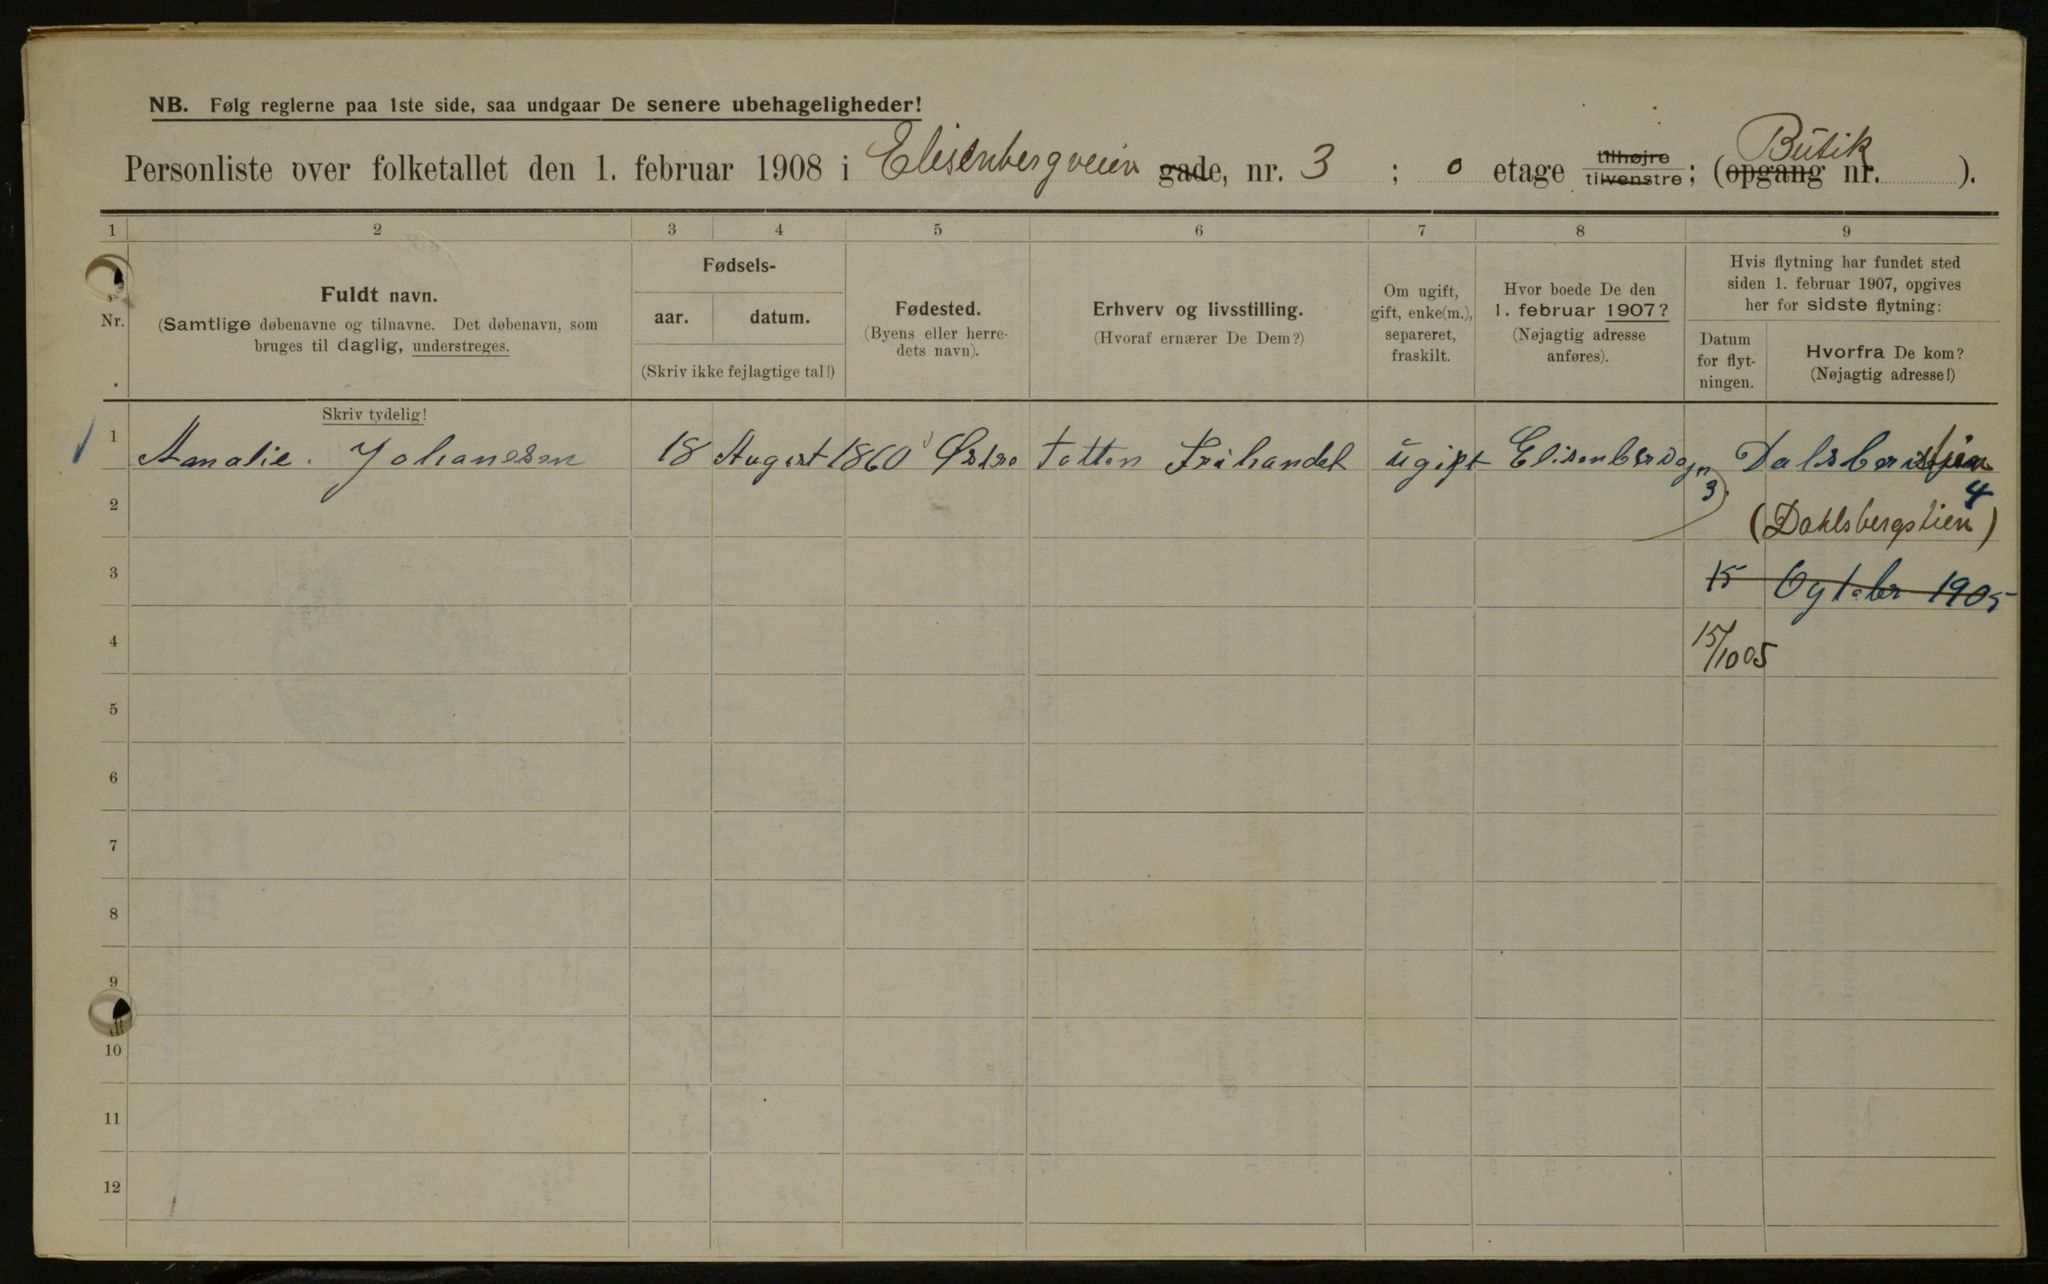 NB. Følg reglerne paa 1ste side, saa undgaar De senere ubehageligheder!
Personliste over folketallet den 1. februar 1908 i Elisenbergveien gade, nr. 3 ; 0 etage tilhøjre tilvenstre; (opgang nr. Butik ).
1 2 3 4 5 6 7 8 9
Nr.
Fuldt navn.
(Samtlige døbenavne og tilnavne. Det døbenavn, som
bruges til daglig, understreges.
Skriv tydelig!
Fødsels-
aar. datum.
(Skriv ikke fejlagtige tal!)
Fødested.
(Byens eller herre-
dets navn).
Erhverv og livsstilling.
(Hvoraf ernærer De Dem?)
Om ugift,
gift, enke(m.),
separeret,
fraskilt.
Hvor boede De den
1. februar 1907?
(Nøjagtig adresse
anføres).
Hvis flytning har fundet sted
siden 1. februar 1907, opgives
her for sidste flytning:
Datum
for flyt-
ningen.
Hvorfra De kom?
(Nøjagtig adresse!)
1 Amalie. Johanesen 18 August 1860 Østre Totten Frihandel ugift Dalsbergstien
3 4
2 (Dahlsbergstien)
3 15 Ogtober 1905
4 15/10 05
5
6
7
8
9
10
11
12